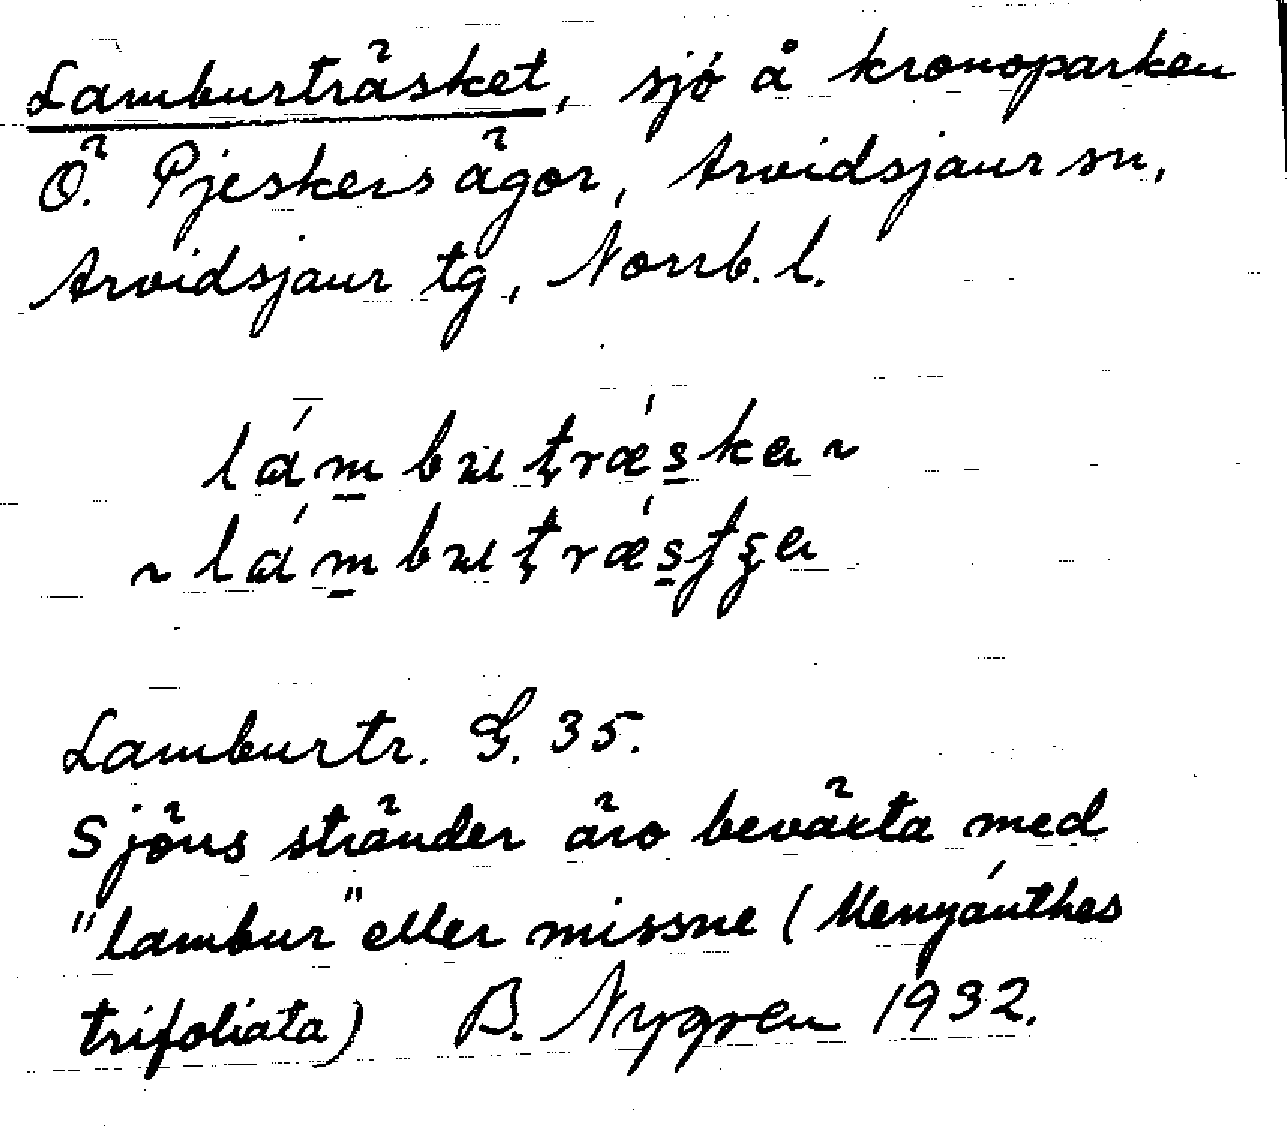 Lamburträsket, sjö å kronoparken
Ö. Pjeskers ägor, Arvidsjaur sn,
Arvidsjaur tg, Norrb. l.
lámbutrǽska ~
~ lámbutrǽ
Lamburtr. G. 35.
Sjöns stränder äro beväxta med
"lambur" eller missne (Menyánthes
trifoliata) B. Nygren 1932.